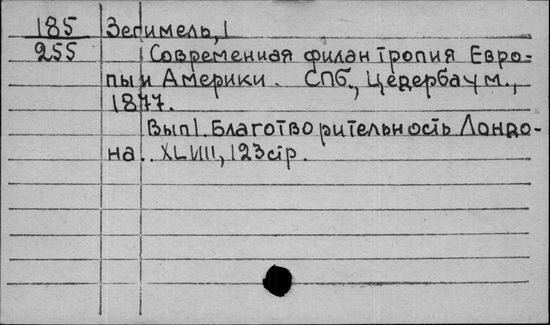 185 Зегимель, I
255 Современная филантропия Евро=
пы и Америки. СПб., Цедербаум.,
1877.
Вып I. Благотворительность Лондо-
на. XLVIII, 123 стр.